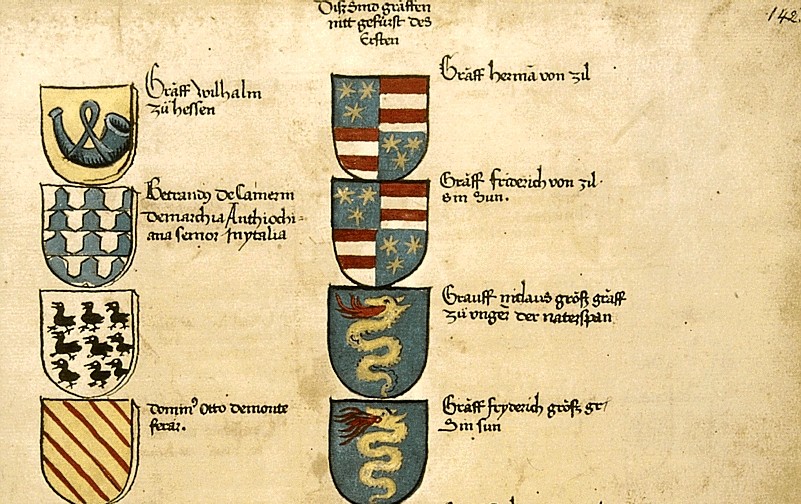 Diß Sind gräffen
nitt gefürst des
Ersten
142
Gräff Wilhalm
zü hessen
Betrandus De Camerin
Demarchia Anthiochi-
ana semor Inytalia
Domin⁹ Otto Demonte
ferar.
Gräff hermā von zil
Gräff friderich von zil
Sin Sun.
Grauff niclaus gröss gräff
zü unger der naterspan
Gräff fryderich gröss gr
Sin sun